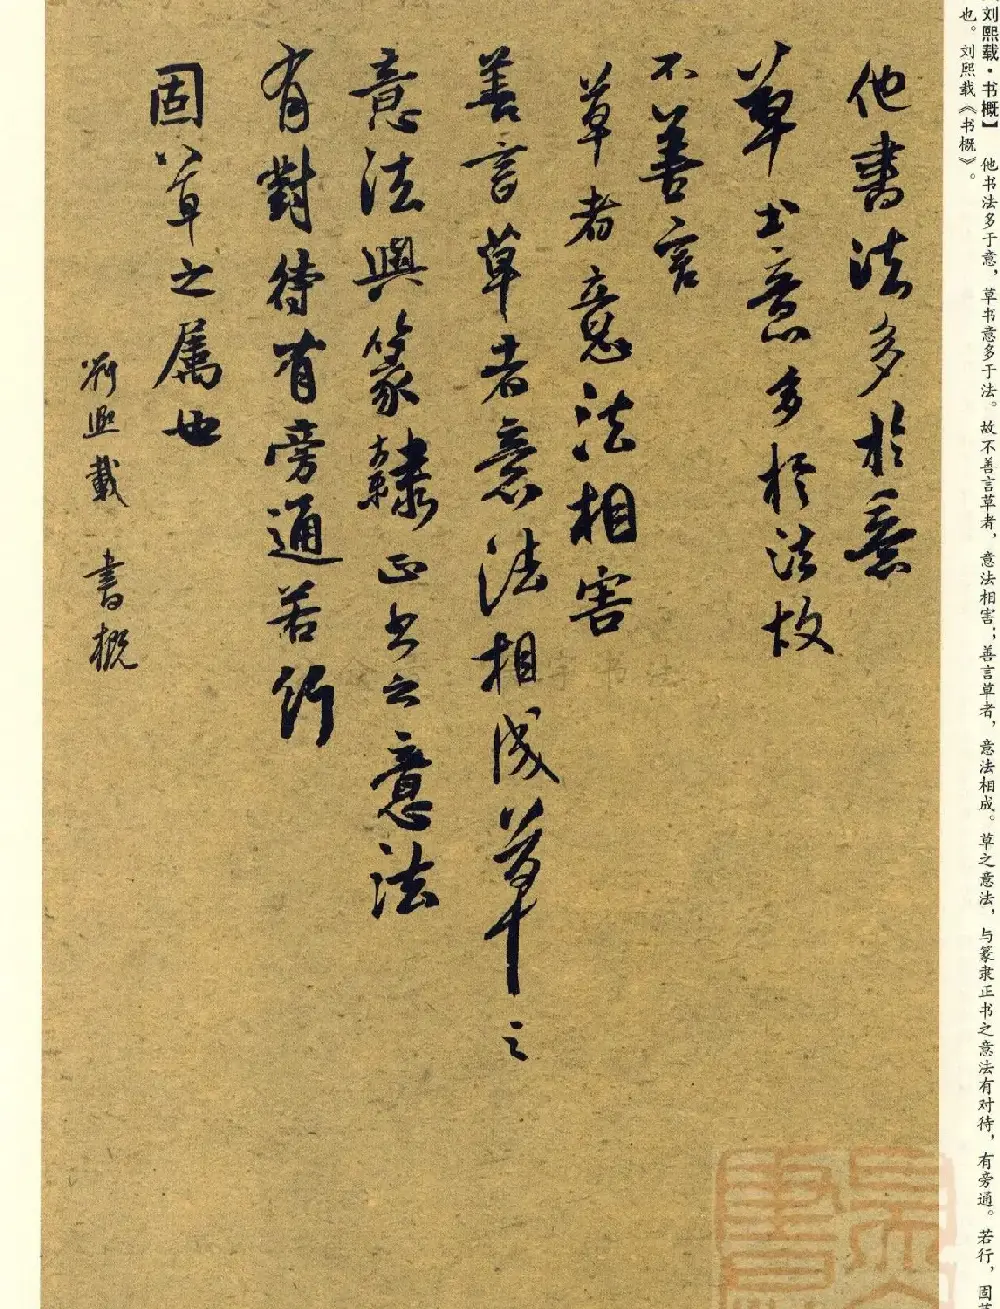 刘熙载·书概】 他书法多于意，草书意多于法。故不善言草者，意法相害；善言草者，意法相成。草之意法，与篆隶正书之意法有对待，有旁通。若行，固草
也。刘熙载《书概》。
他書法多於意
草书意多於法故
不善言
草者意法相害
善言草者意法相成草之
意法與篆隸正书之意法
有對待有旁通若行
固草之属也
劉熙載 書概